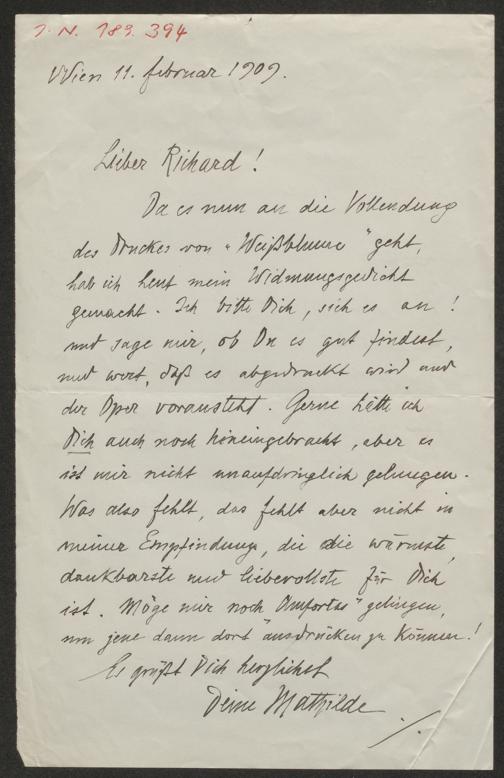 I. N. 189.394
Wien 11. februar 1909.
Lieber Richard!
Da es nun an die Vollendung
des Druckes von "Weißblume" geht,
hab ich heut mein Widmungsgedicht
gemacht. Ich bitte Dich, sieh es an!
und sage mir, ob Du es gut findest,
und wert, daß es abgedruckt wird und
der Oper voransteht. Gerne hätte ich
Dich auch noch hineingebracht, aber es
ist mir nicht unaufdringlich gelungen.
Was also fehlt, das fehlt aber nicht in
meiner Empfindung, die die wärmste,
dankbarste und liebevollste für Dich
ist. Möge mir noch "Amfortas" gelingen,
um jene dann dort ausdrücken zu können!
Es grüßt Dich herzlichst
Deine Mathilde
./.